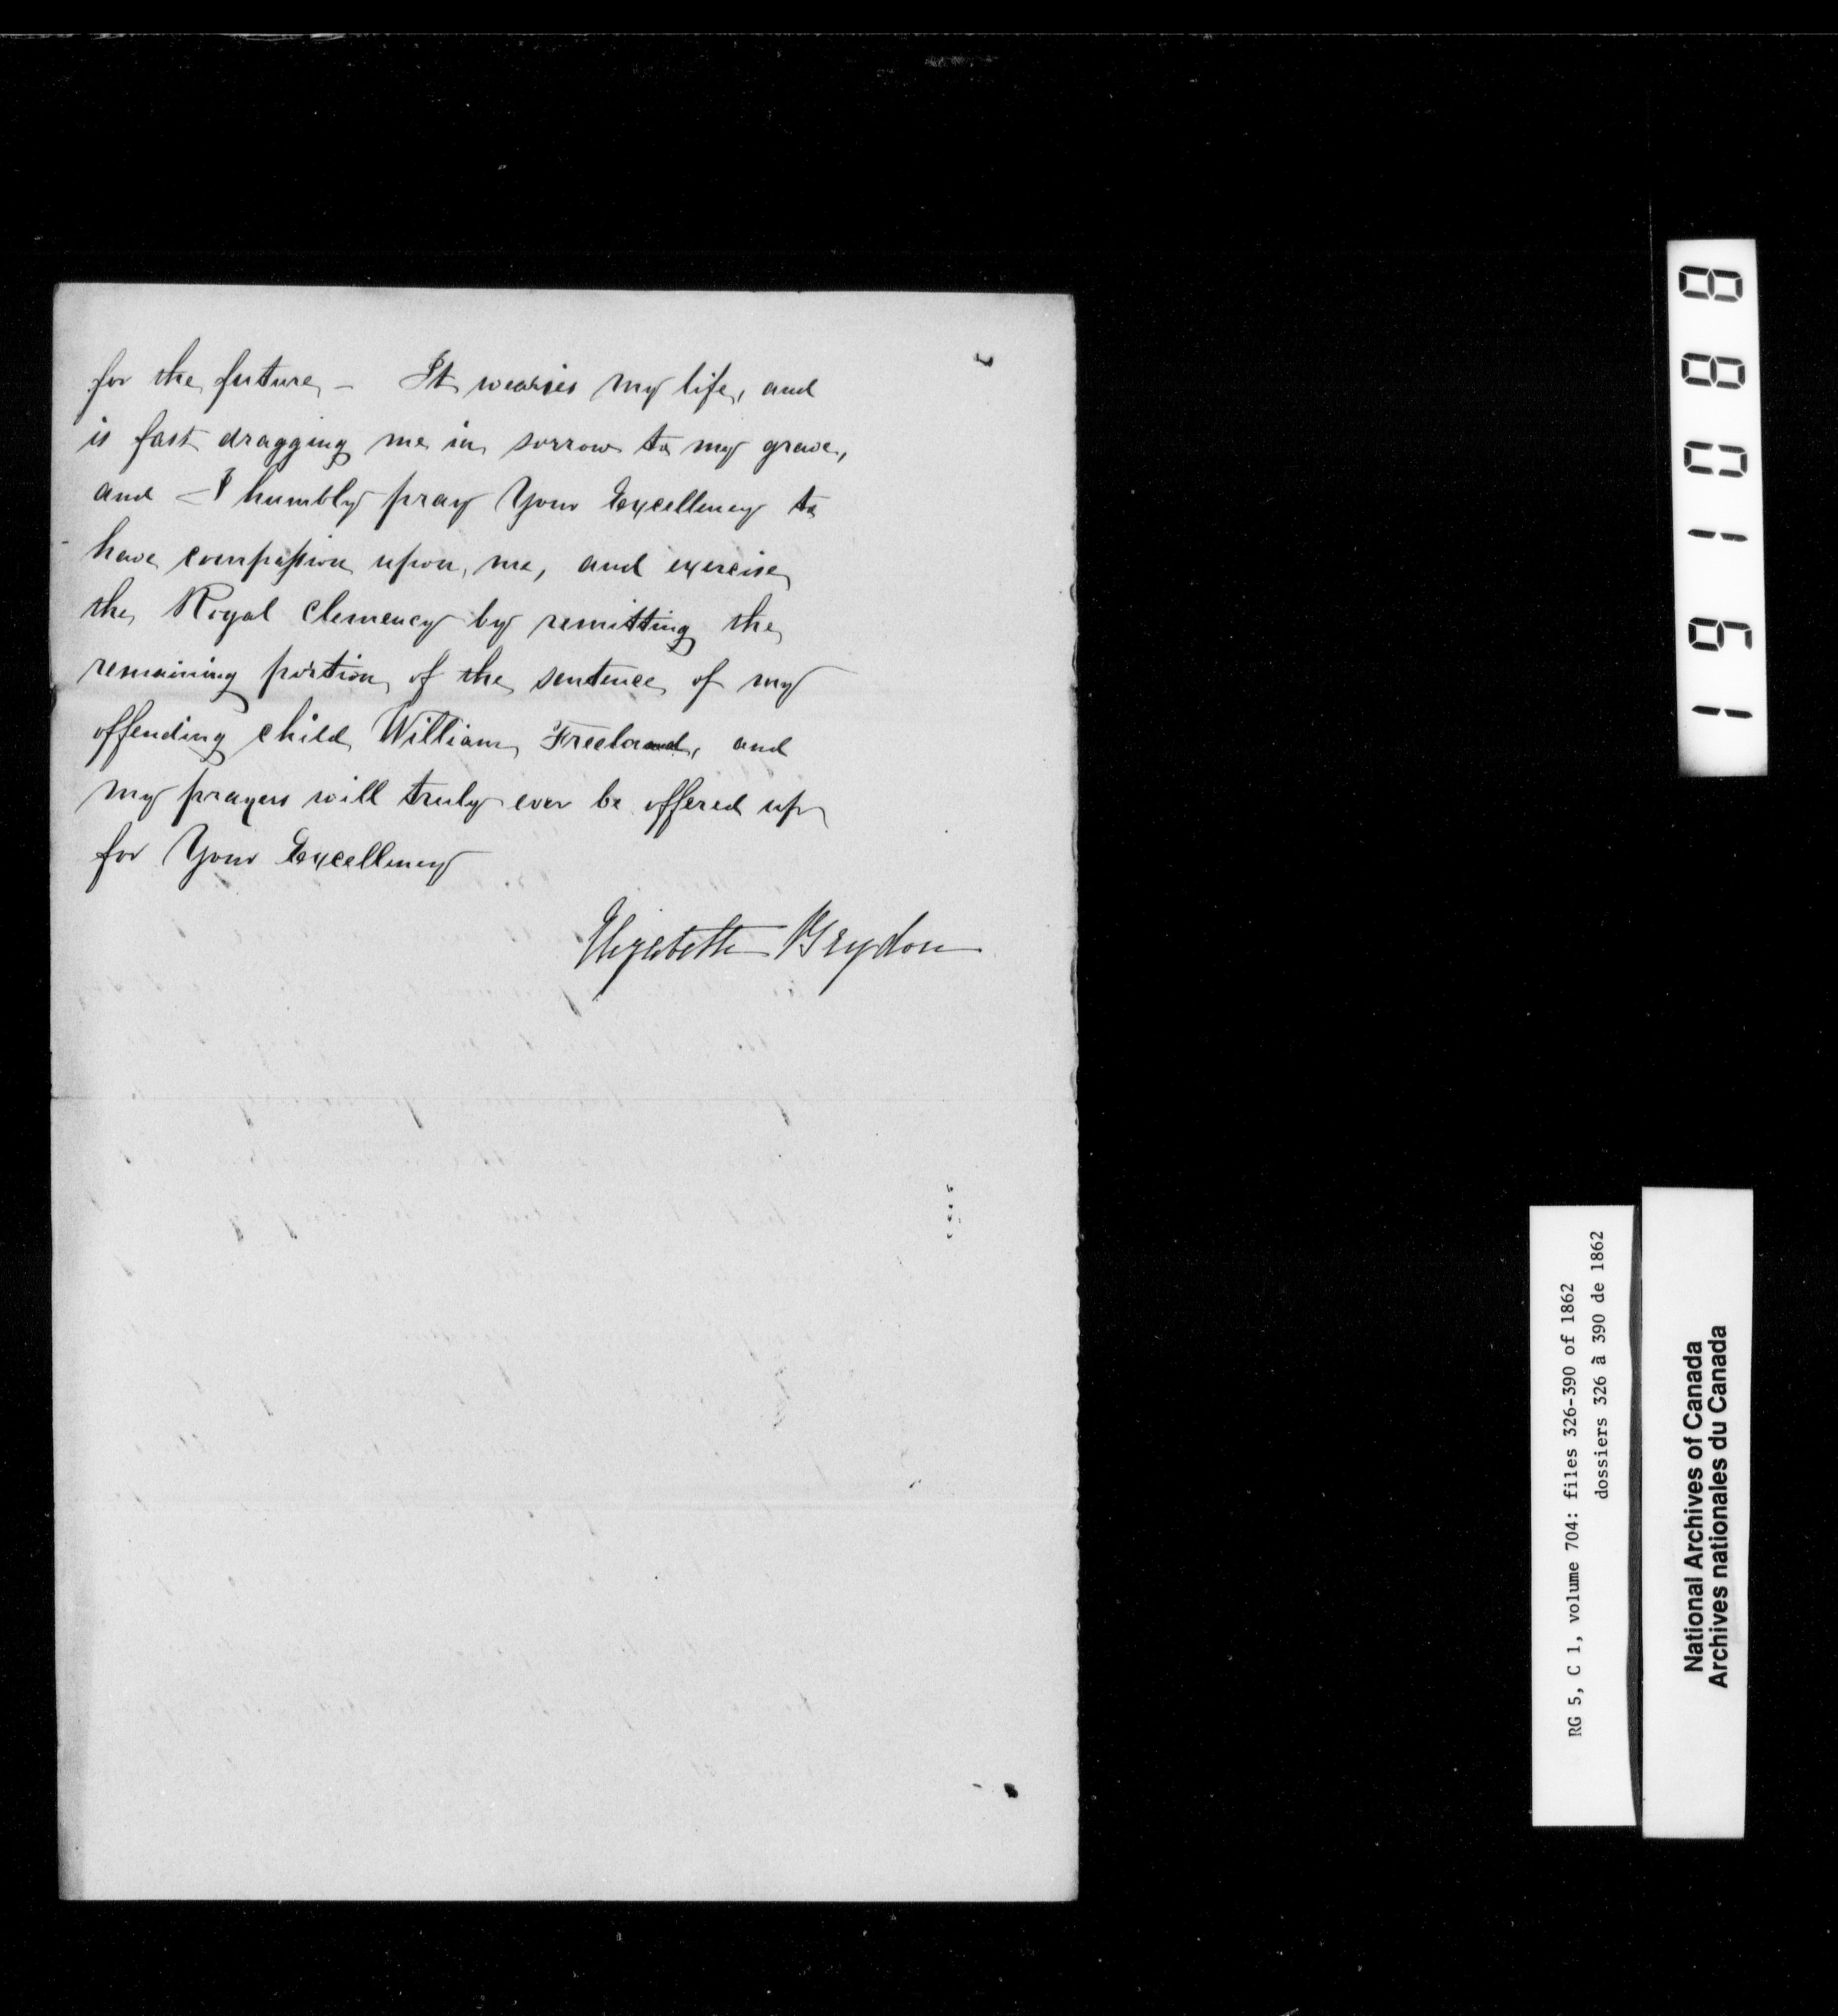 for the future – It wearies my life, and
is fast dragging me in sorrow to my grave,
and I humbly pray Your Excellency to
have compassion upon me, and exercise
the Royal Clemency by remitting the
remaining portion of the sentence of my
offending child William Freeland, and
my prayers will truly ever be offered up
for Your Excellency
Elizabeth Brydon
191088
RG 5, C 1, volume 704: files 326-390 of 1862
dossiers 326 à 390 de 1862
National Archives of Canada
Archives nationales du Canada